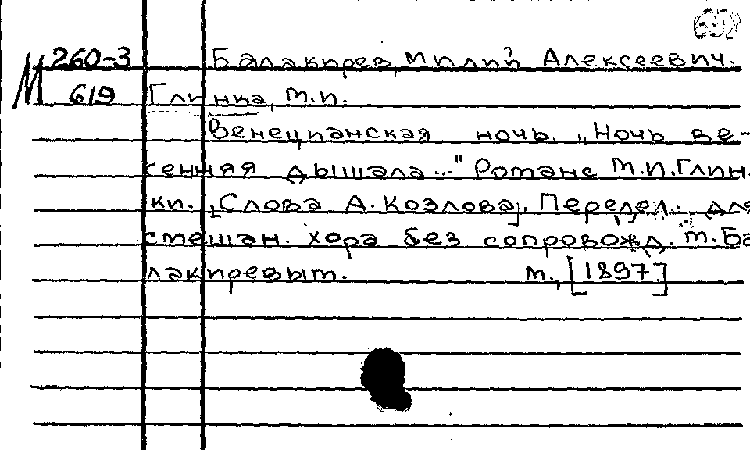 652
М 260-3 Балакирев, Милий Алексеевич.
619 Глинка, М.И.
Венецианская ночь. „Ночь ве-
сенняя дышала..." Романс М.И.Глин-
ки. [Слова А. Козлова]. Перелож. для
смешан. хора без сопровожд. М. Ба-
лакиревым. М., [1897]